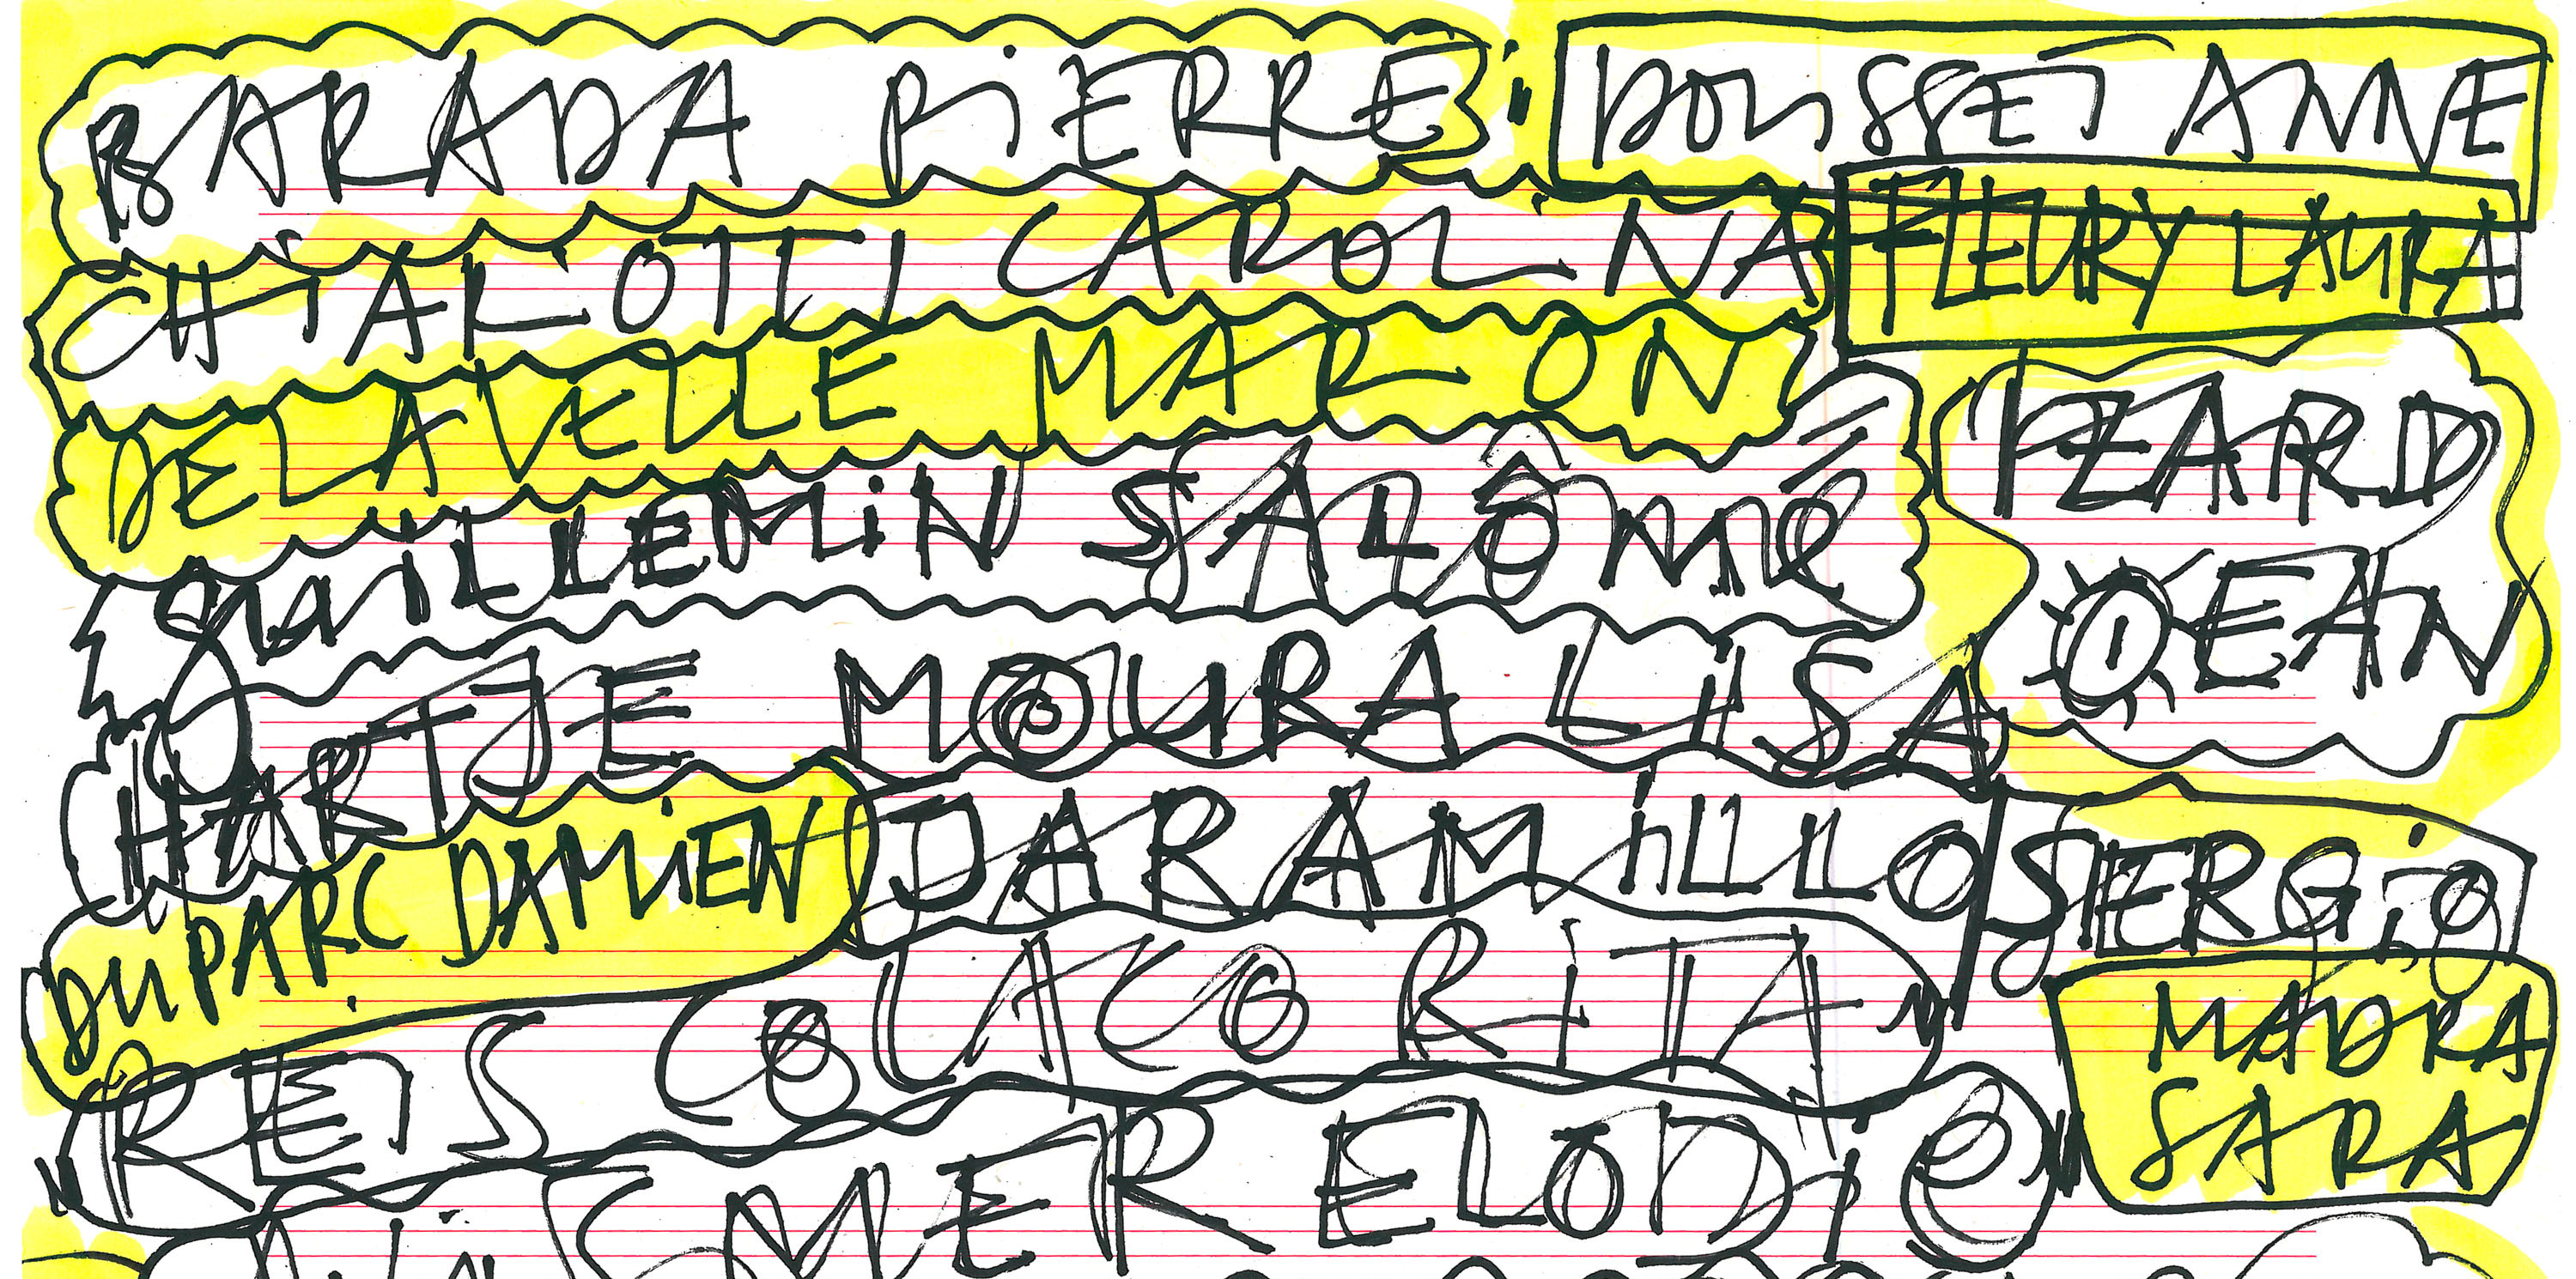 BARADA PiERRE
DOUSSET ANNE
CHiAROTTi CAROLiNA
FLEURY LAURA
DELAVELLE MARiON
FEARD
OEAN
GUiLLEMiN SALÔMÉ
HARTJE MOURA LiSA
DUPARC DAMiEN
JARAMiLLO SERGiO
REiS COLACO RiTA
MADRA
SARA
ELODiE